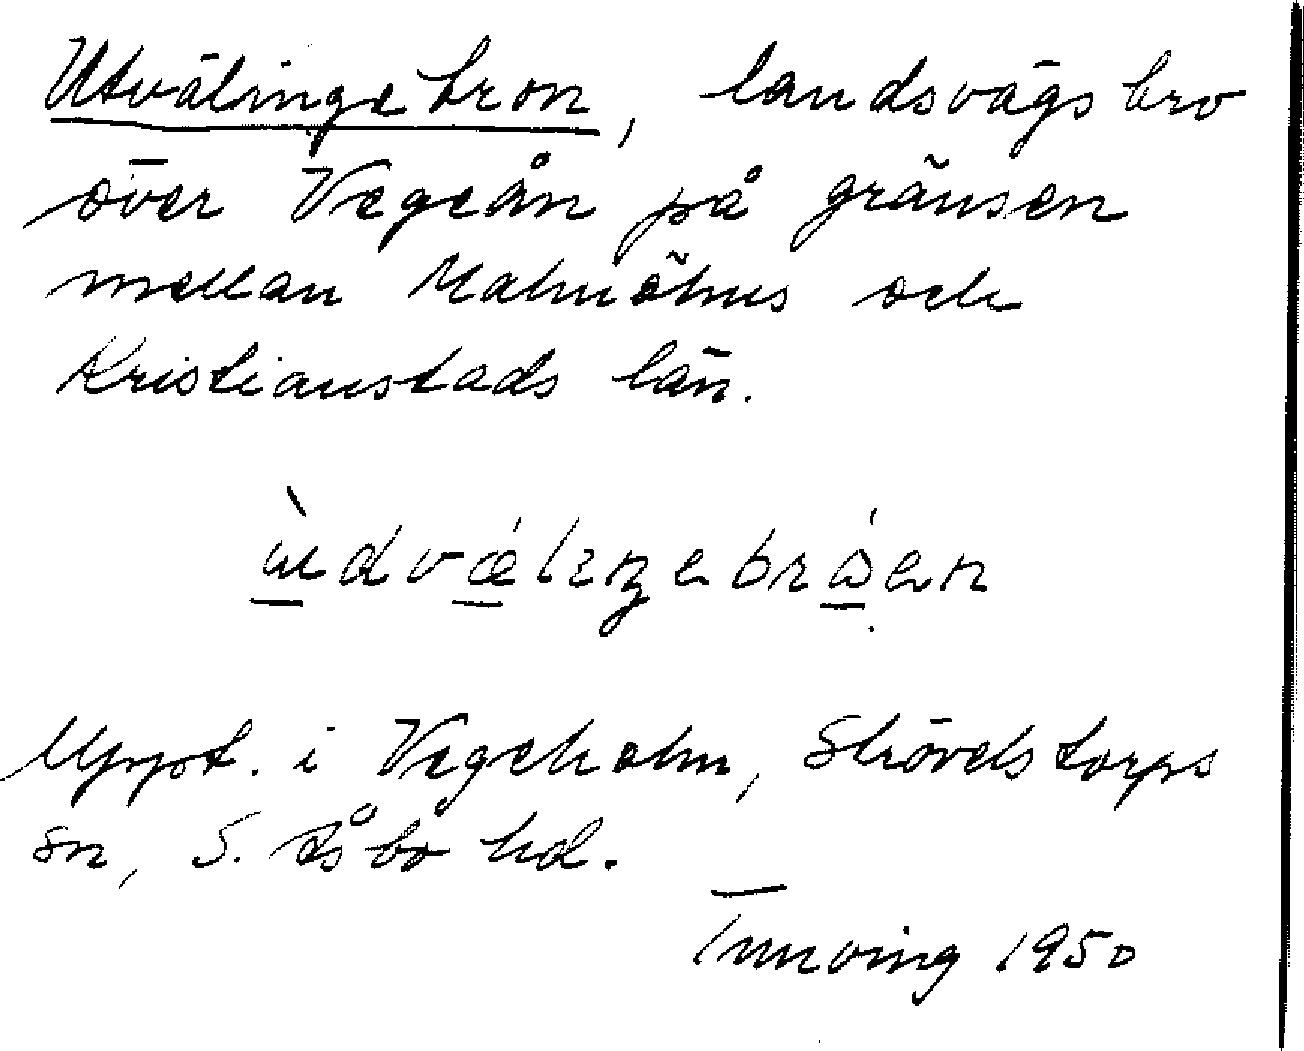 Utvälingebron, landsvägsbro
över Vegeån på gränsen
mellan Malmöhus och
Kristianstads län.
ùdvǽlɪŋebróen
Uppt. i Vegeholm, Strövelstorps
sn, S. Åsbo hd.
Tunving 1950